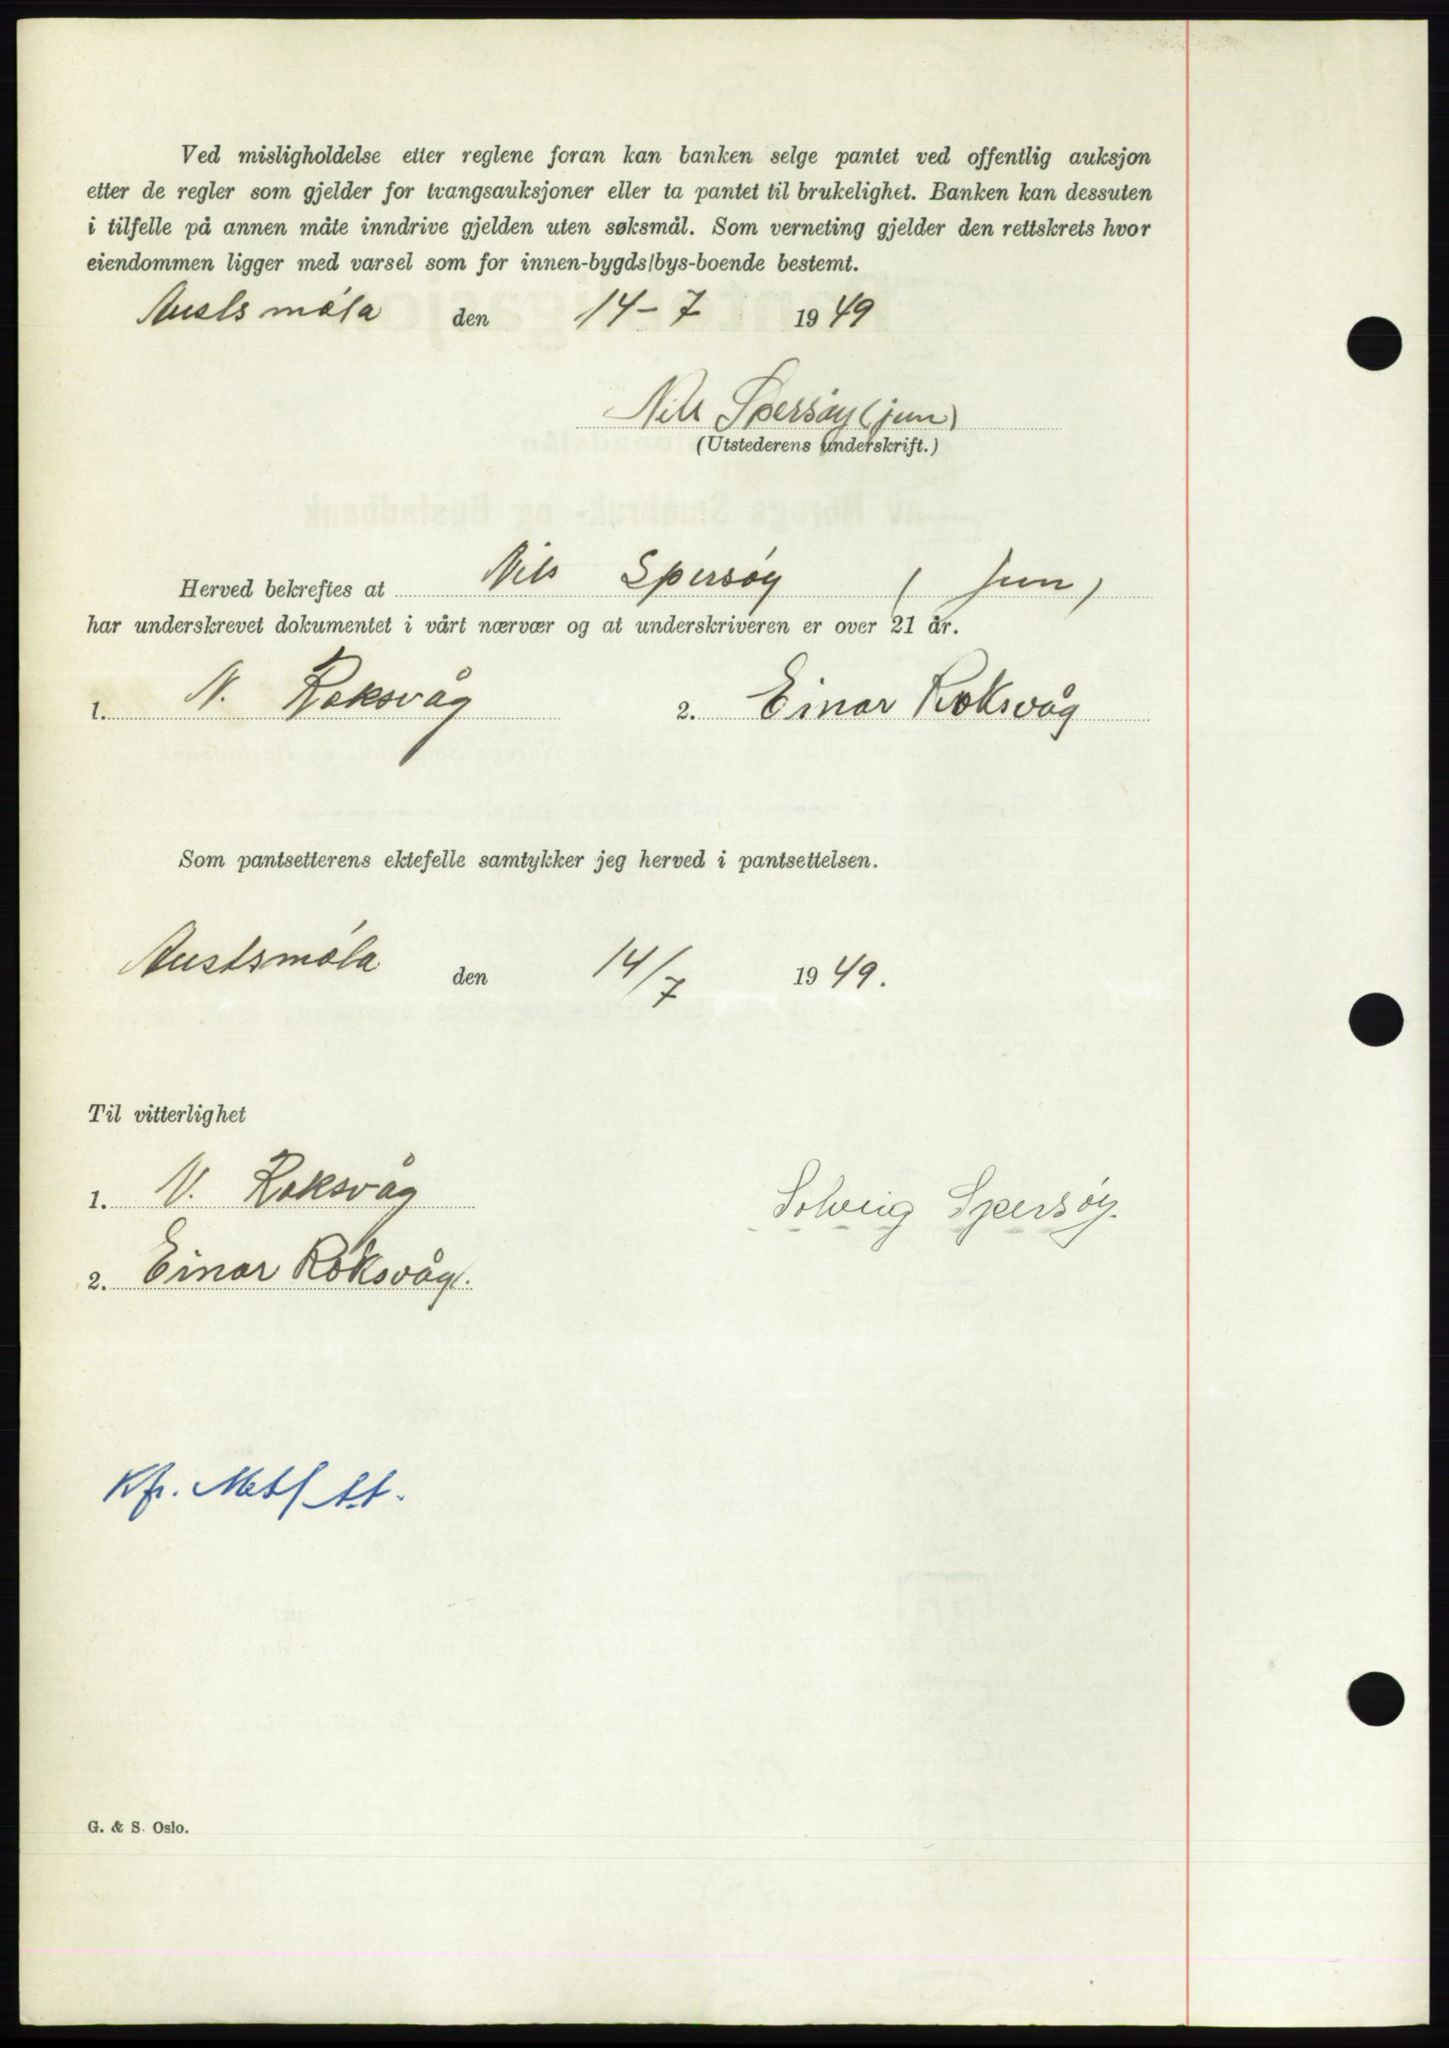 Ved misligholdelse etter reglene foran kan banken selge pantet ved offentlig auksjon
etter de regler som gjelder for tvangsauksjoner eller ta pantet til brukelighet. Banken kan dessuten
i tilfelle på annen måte inndrive gjelden uten søksmål. Som verneting gjelder den rettskrets hvor
eiendommen ligger med varsel som for innen-bygds/bys-boende bestemt.
Austsmøla den 14-7 1949
Nils Spersøy (jun)
(Utstederens underskrift.)
Herved bekreftes at Nils Spersøy (jun)
har underskrevet dokumentet i vårt nærvær og at underskriveren er over 21 år.
1. N. Roksvåg 2. Einar Roksvåg
Som pantsetterens ektefelle samtykker jeg herved i pantsettelsen.
Austsmøla den 14/7 1949.
Til vitterlighet
1. N. Roksvåg
Solveig Spersøy.
2. Einar Roksvåg.
Kfr.
G. & S. Oslo.